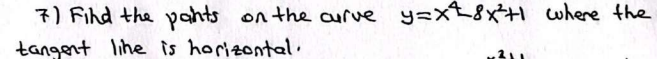 7) Find the points on the curve y=x⁴-8x²+1 where the
tangent line is horizontal.